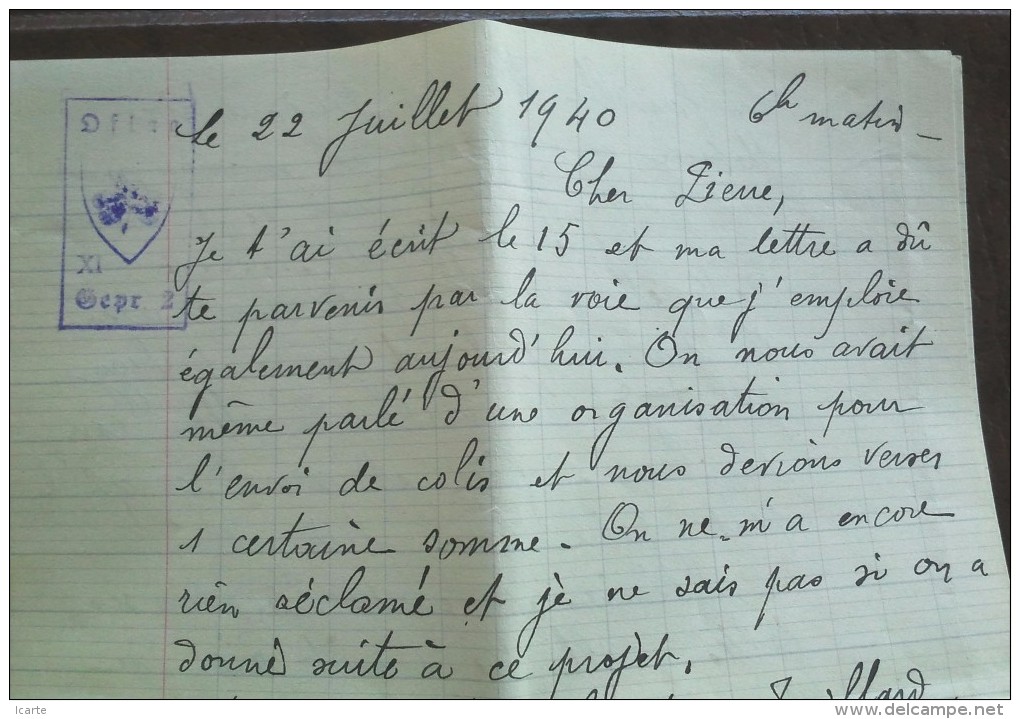 le 22 Juillet 1940 6h matin _
Cher Pierre,
Je t'ai écrit le 15 et ma lettre a dû
te parvenir par la voie que j'emploie
également aujourd'hui. On nous avait
même parlé d'une organisation pour
l'envoi de colis et nous devions verser
1 certaine somme. On ne m'a encore
rien réclamé et je ne sais pas si on a
donné suite à ce projet.
XI
Gepr 2
Icarte
www.delcampe.net